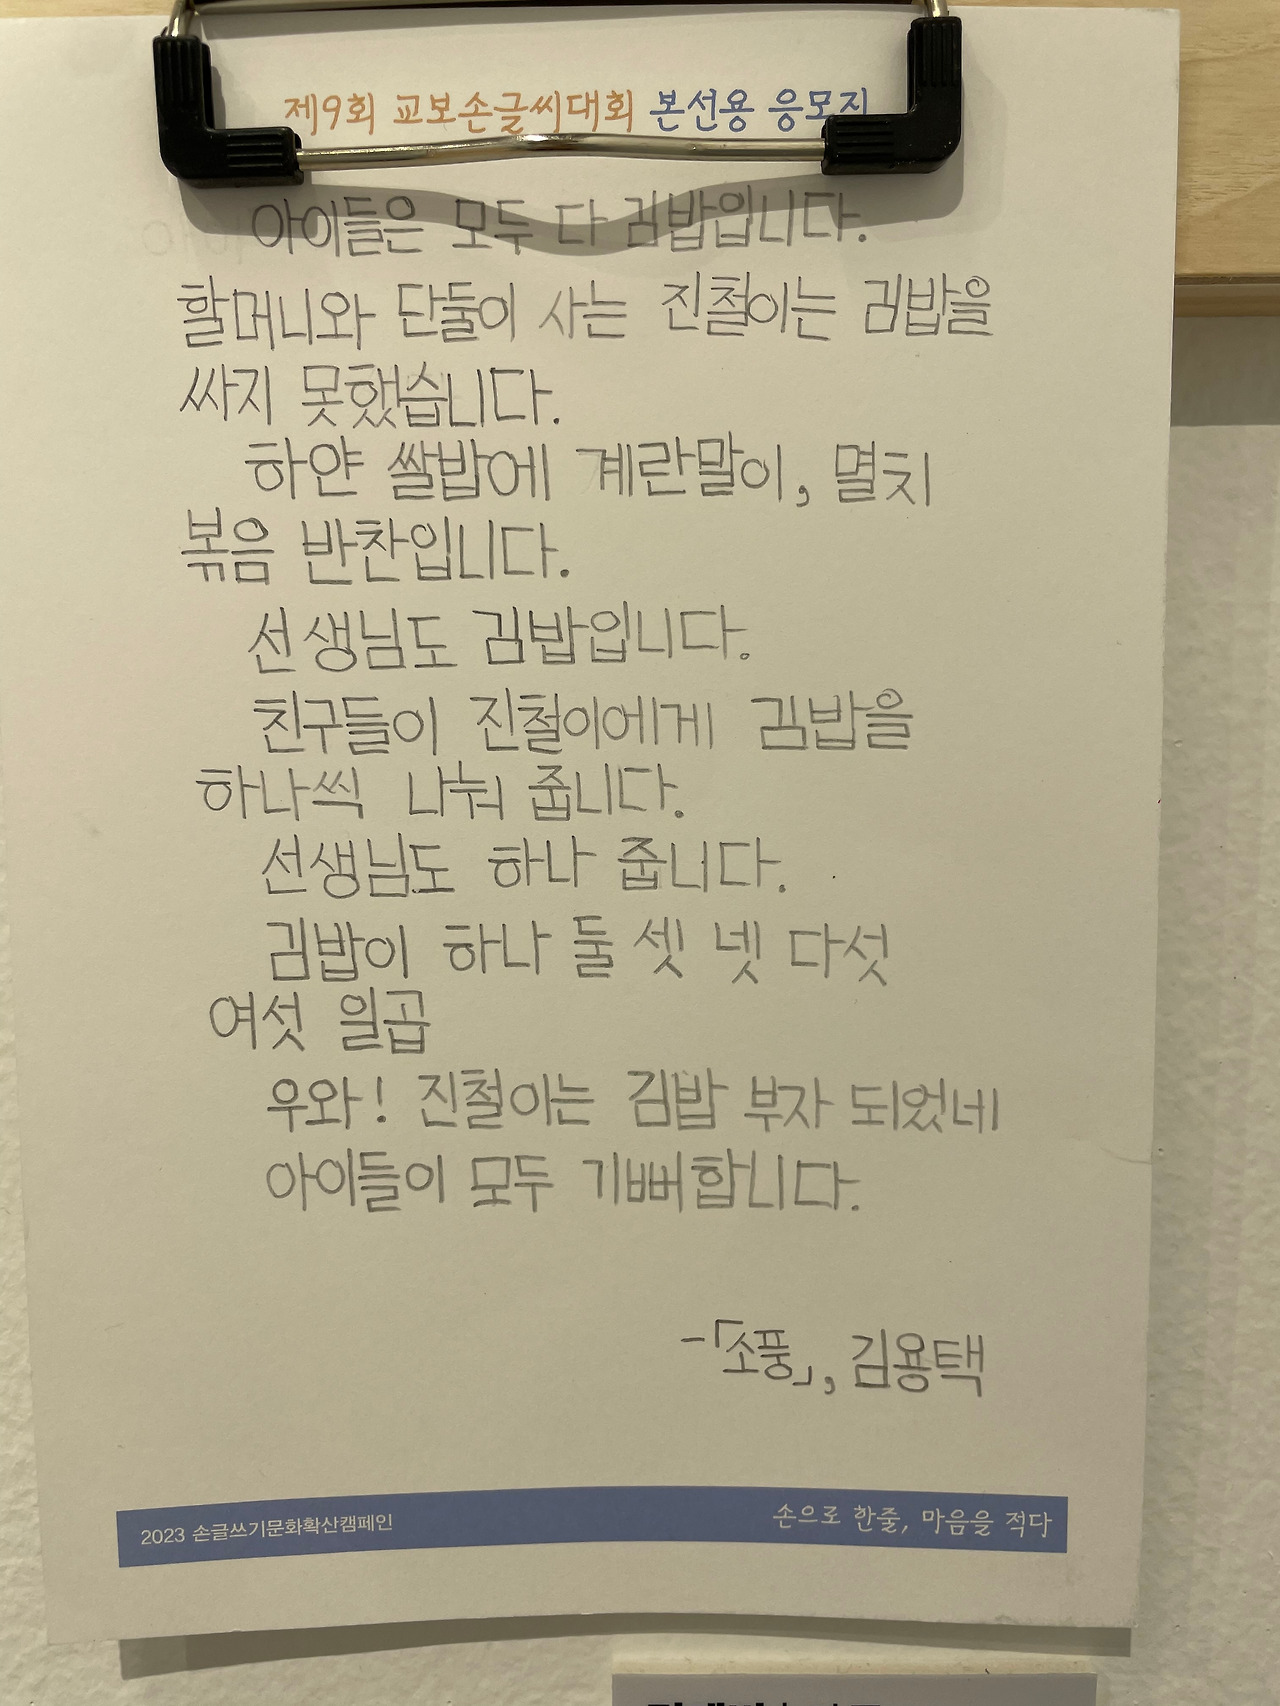 제9회 교보손글씨대회 본선용 응모지
아이들은 모두 다 김밥입니다.
할머니와 단둘이 사는 진철이는 김밥을
싸지 못했습니다.
하얀 쌀밥에 계란말이, 멸치
볶음 반찬입니다.
선생님도 김밥입니다.
친구들이 진철이에게 김밥을
하나씩 나눠 줍니다.
선생님도 하나 줍니다.
김밥이 하나 둘 셋 넷 다섯
여섯 일곱
우와! 진철이는 김밥 부자 되었네
아이들이 모두 기뻐합니다.
-「소풍」, 김용택
2023 손글쓰기문화확산캠페인
손으로 한줄, 마음을 적다